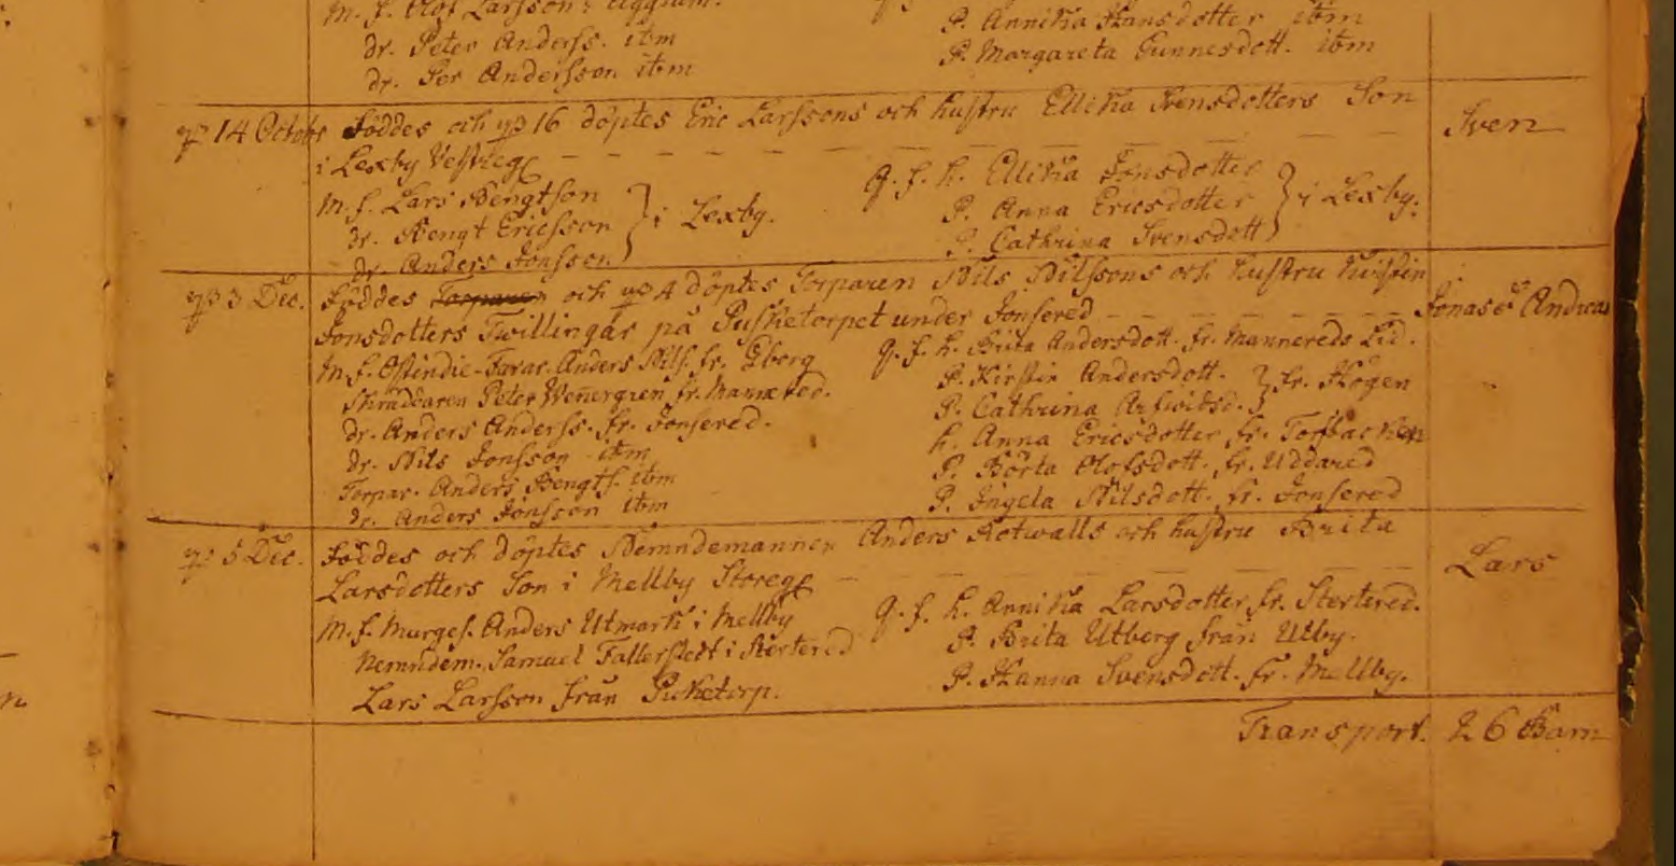 M. f. Olof Larsson i
dr. Peter Anderss. ibm
dr. Per Andersson ibm
P. Annika Hansdotter ibm
P. Margareta Gunnesdott. ibm
14 Octobr föddes och 16 döptes Eric Larssons och hustru Ellika Svensdotters Son
i Lexby Västreg
Sven
M. f. Lars Bengtson
dr. Bengt Ericsson } i Lexby.
dr. Anders Jonsson
Q. f. h. Ellika Jonsdotter
P. Anna Ericsdotter } i Lexby.
P. Cathrina Svensdott
3 Dec. föddes Torparen och 4 döptes Torparen Nils Nilssons och hustru Kirstin
Jonsdotters Twillingar på Pusketorpet under Jonsered
Jonas & Andreas
M. f. Ostindie-Farar. Anders Nilss. fr. Gberg
Skräddaren Peter Wen̄ergren fr. Mannered.
dr. Anders Anderss. fr. Jonsered.
dr. Nils Jonsson ibm
Torpar. Anders Bengts. ibm
dr. Anders Jonsson ibm
Q. f. h. Brita Andersdott. fr. Mannereds Lid.
P. Kirstin Andersdott. } fr. Skogen
P. Cathrina Arfwidsd.
h. Anna Ericsdotter fr. Torsbacken
P. Börta Olofsdott. fr. Uddared
P. Ingela Nilsdott. fr. Jonsered
5 Dec. föddes och döptes Nemndemannen Anders Rotwalls och hustru Brita
Larsdotters Son i Mellby Storeg
Lars
M. f. Murges. Anders Utmark i Mellby
Nemndem. Samuel Fallerstedt i Stertered
Lars Larsson från Pusketorp.
Q. f. h. Annika Larsdotter fr. Stertered.
P. Brita Utberg från Utby.
P. Hanna Svensdott. fr. Mellby.
Transport. 26 Barn